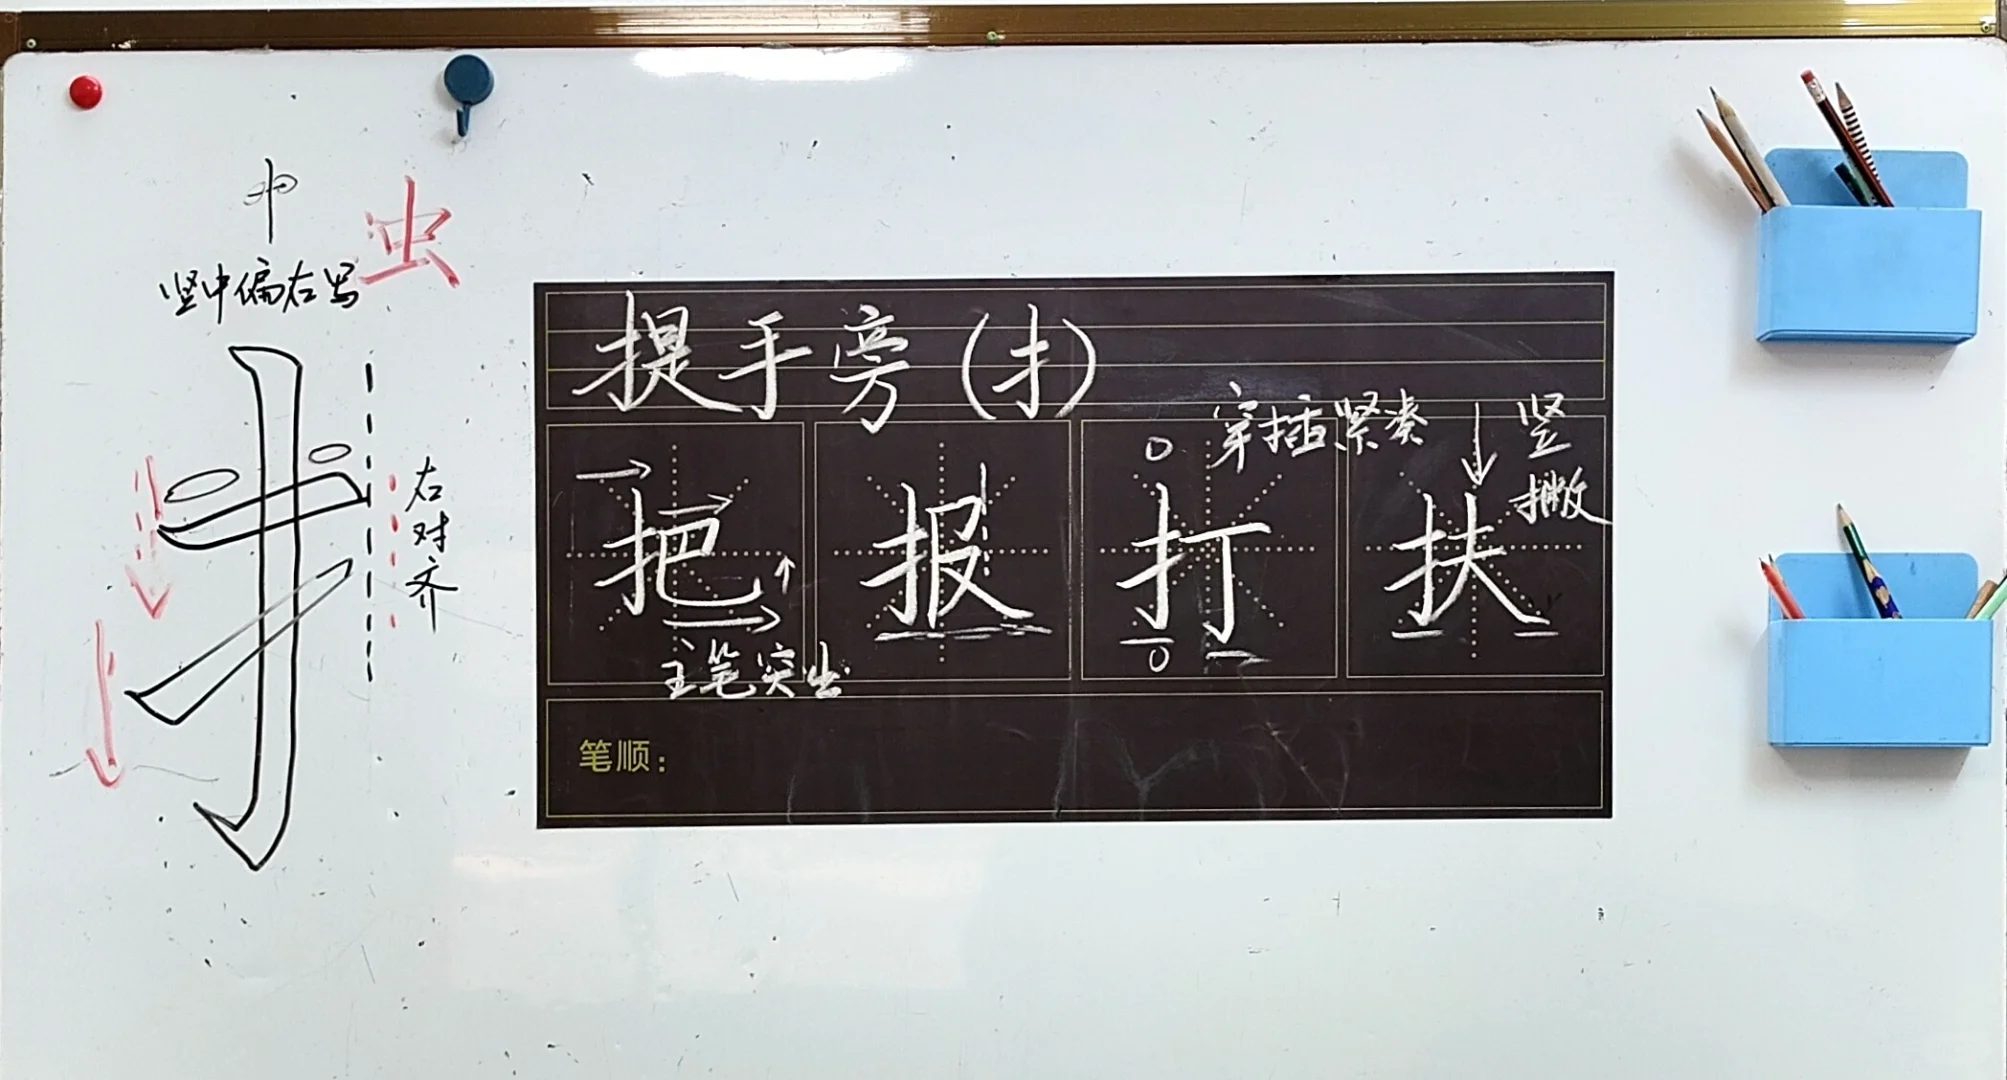 中
虫
竖中偏右写
右对齐
提手旁(扌)
穿插紧凑
竖
撇
把
报
打
扶
主笔突出
笔顺：